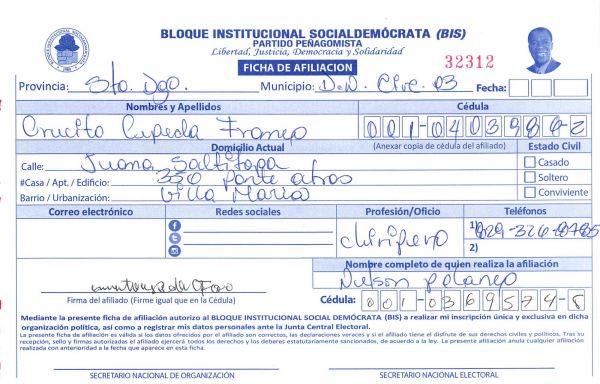 BLOQUE INSTITUCIONAL SOCIALDEMÓCRATA (BIS)
PARTIDO PEÑAGOMISTA
Libertad, Justicia, Democracia y Solidaridad
FICHA DE AFILIACION
32312
Provincia: Sto. Dgo. Municipio: D.N. Circ. 03 Fecha:
Nombres y Apellidos Cédula
Crucito Cepeda Franco 001-0403986-2
Domicilio Actual (Anexar copia de cédula del afiliado) Estado Civil
Calle: Juana Saltitopa Casado
#Casa / Apt. / Edificio: 350 parte atras Soltero
Barrio / Urbanización: Villa Maria Conviviente
Correo electrónico Redes sociales Profesión/Oficio Teléfonos
chiripero 1) 829-326-8785
2)
Nombre completo de quien realiza la afiliación
Nelson Polanco
Firma del afiliado (Firme igual que en la Cédula) Cédula: 001-0369574-8
Mediante la presente ficha de afiliación autorizo al BLOQUE INSTITUCIONAL SOCIAL DEMÓCRATA (BIS) a realizar mi inscripción única y exclusiva en dicha
organización política, así como a registrar mis datos personales ante la Junta Central Electoral.
La presente ficha de afiliación es valida si los datos ofrecidos por el afiliado son correctos, las declaraciones veraces y si el afiliado tiene el disfrute de sus derechos civiles y políticos. Tras su
recepción, sello y firmas autorizadas el afiliado ejercerá todos los derechos y los deberes estatutariamente sancionados, de acuerdo a la ley. La presente afiliación anula cualquier afiliación
realizada con anterioridad a la fecha que aparece en esta ficha.
SECRETARIO NACIONAL DE ORGANIZACIÓN SECRETARIO NACIONAL ELECTORAL